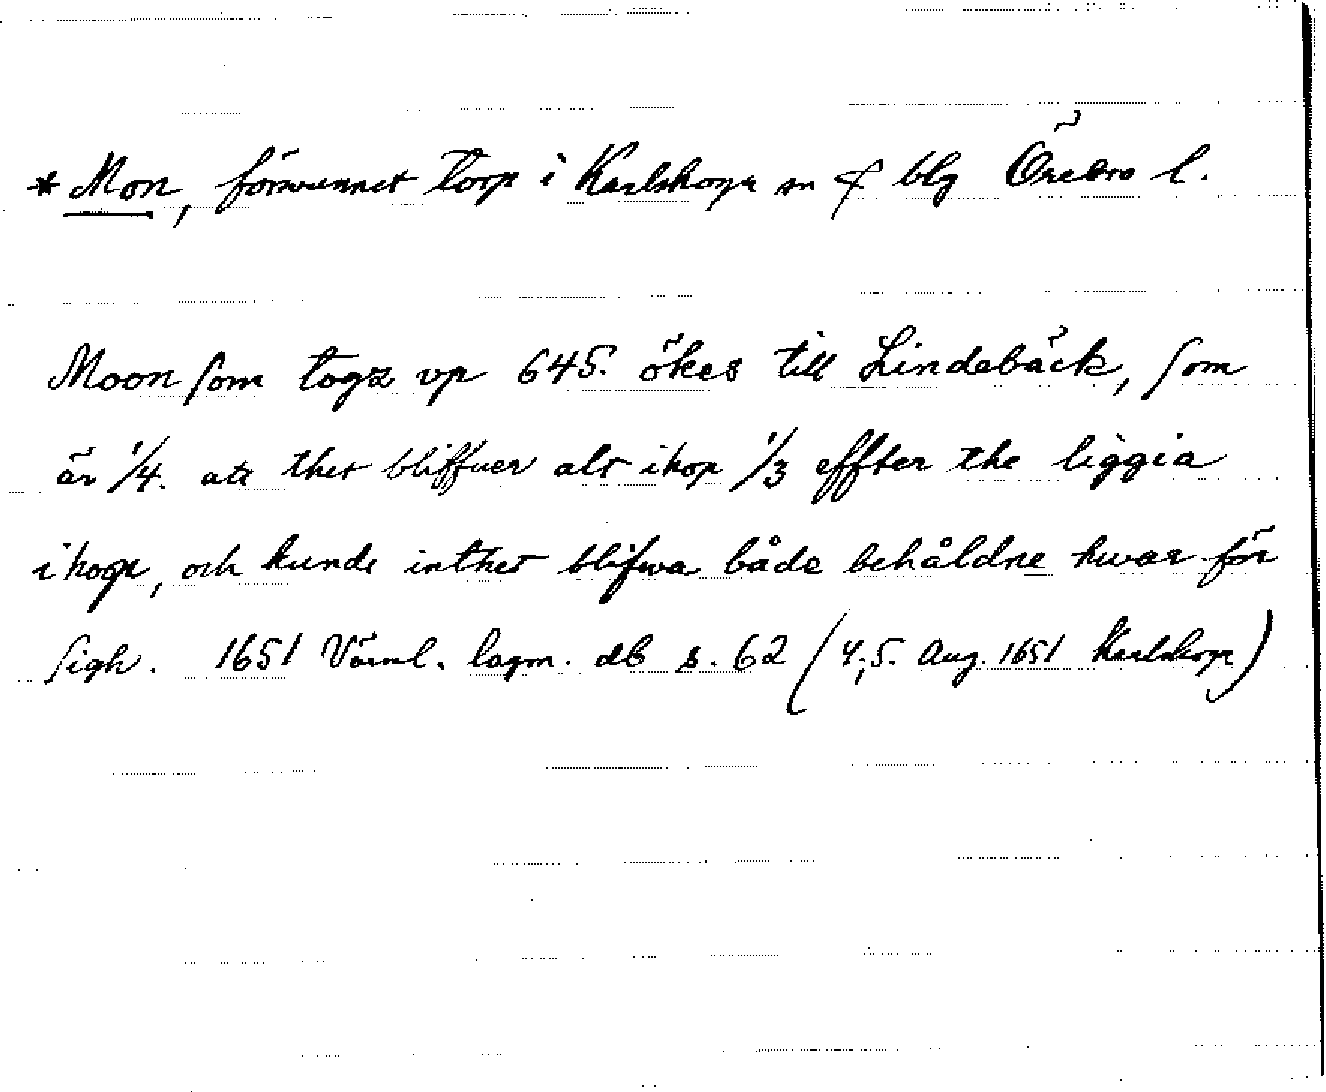 * Mon, försvunnet torp i Karlskoga sn & blg Örebro l.
Moon som togz vp 645. ökes till Lindebäck, som
är 1/4. att thet bliffuer alt ihop 1/3 effter the liggia
ihop, och kunde inthet blifwa både behåldne hwar för
sigh. 1651 Värml. lagm. db s. 62 (4, 5. Aug. 1651 Karlskoga)